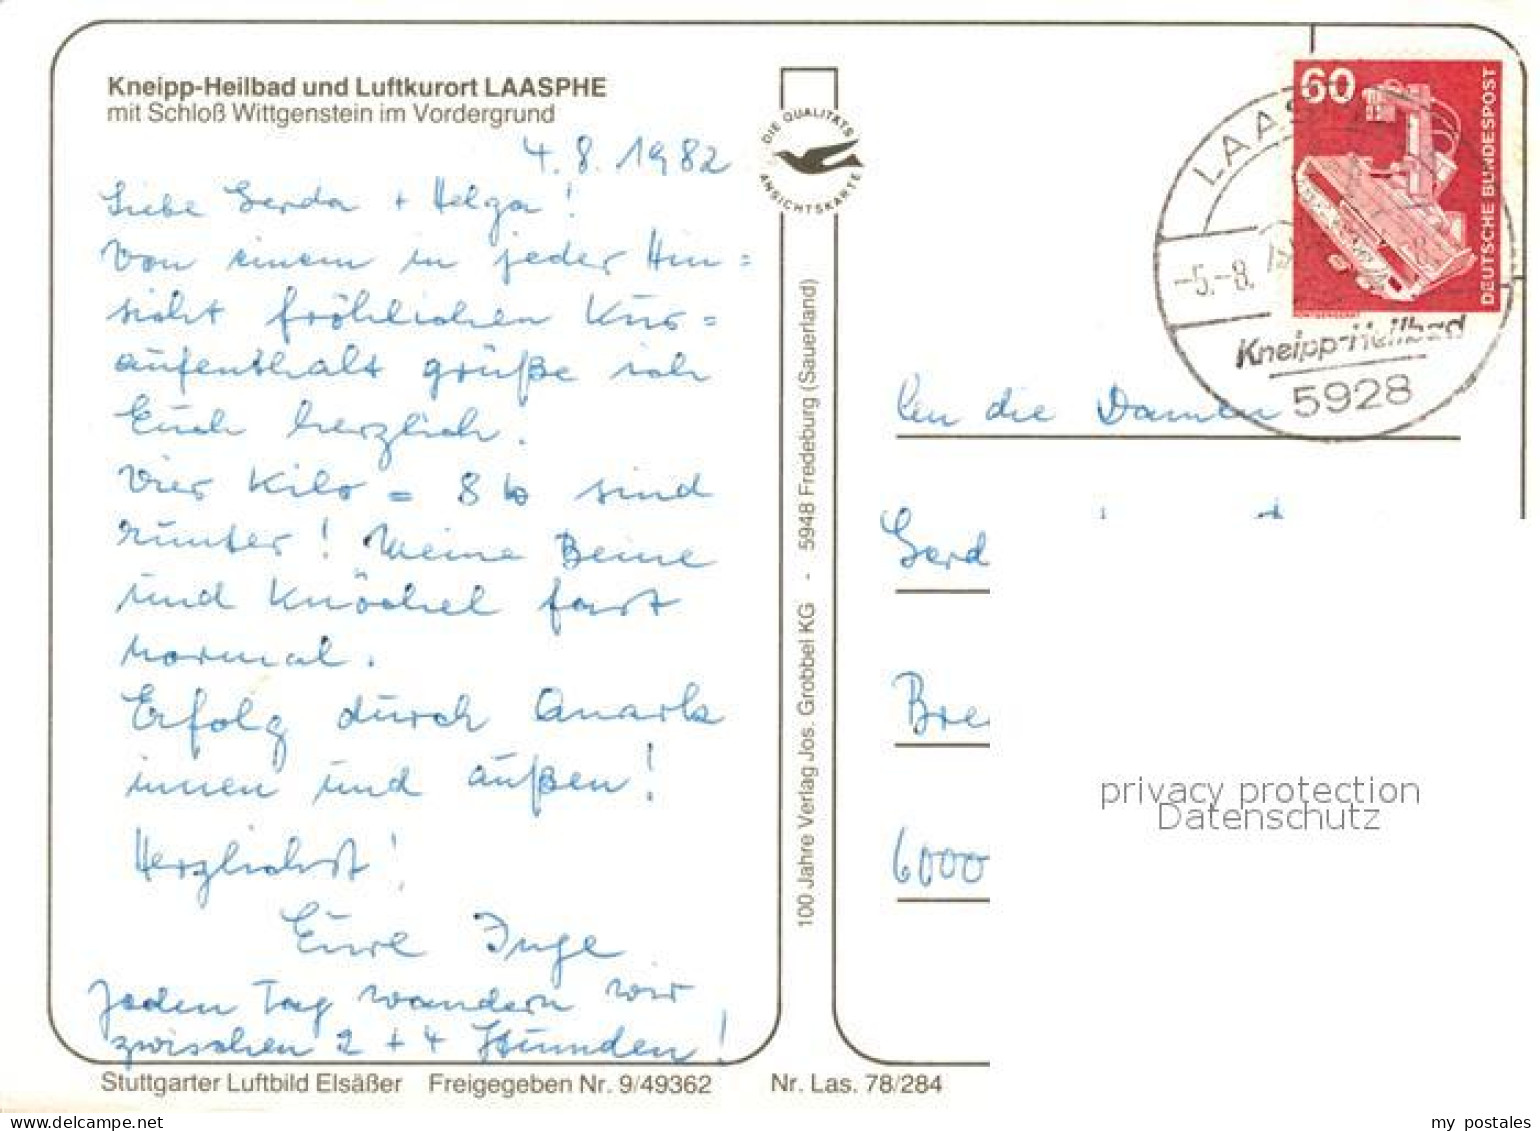 Kneipp-Heilbad und Luftkurort LAASPHE
mit Schloß Wittgenstein im Vordergrund
4.8.1982
Liebe Gerda + Helga!
Von einem in jeder Hin=
sicht fröhlichen Kur=
aufenthalt grüße ich
Euch herzlich.
Vier Kilo = 8 tb sind
runter! Meine Beine
und Knöchel fast
normal.
Erfolg durch Quark
innen und außen!
Herzlichst!
Eure Inge
Jeden Tag wandern wir
zwischen 2 + 4 Stunden!
Stuttgarter Luftbild Elsäßer Freigegeben Nr. 9/49362 Nr. Las. 78/284
DIE QUALITÄTS
ANSICHTSKARTE
100 Jahre Verlag Jos. Grobbel KG - 5948 Fredeburg (Sauerland)
60
DEUTSCHE BUNDESPOST
LAAS
-5.-8.
Kneipp-Heilbad
5928
An die Damen
Gerd
Bre
6000
privacy protection
Datenschutz
www.delcampe.net
my_postales